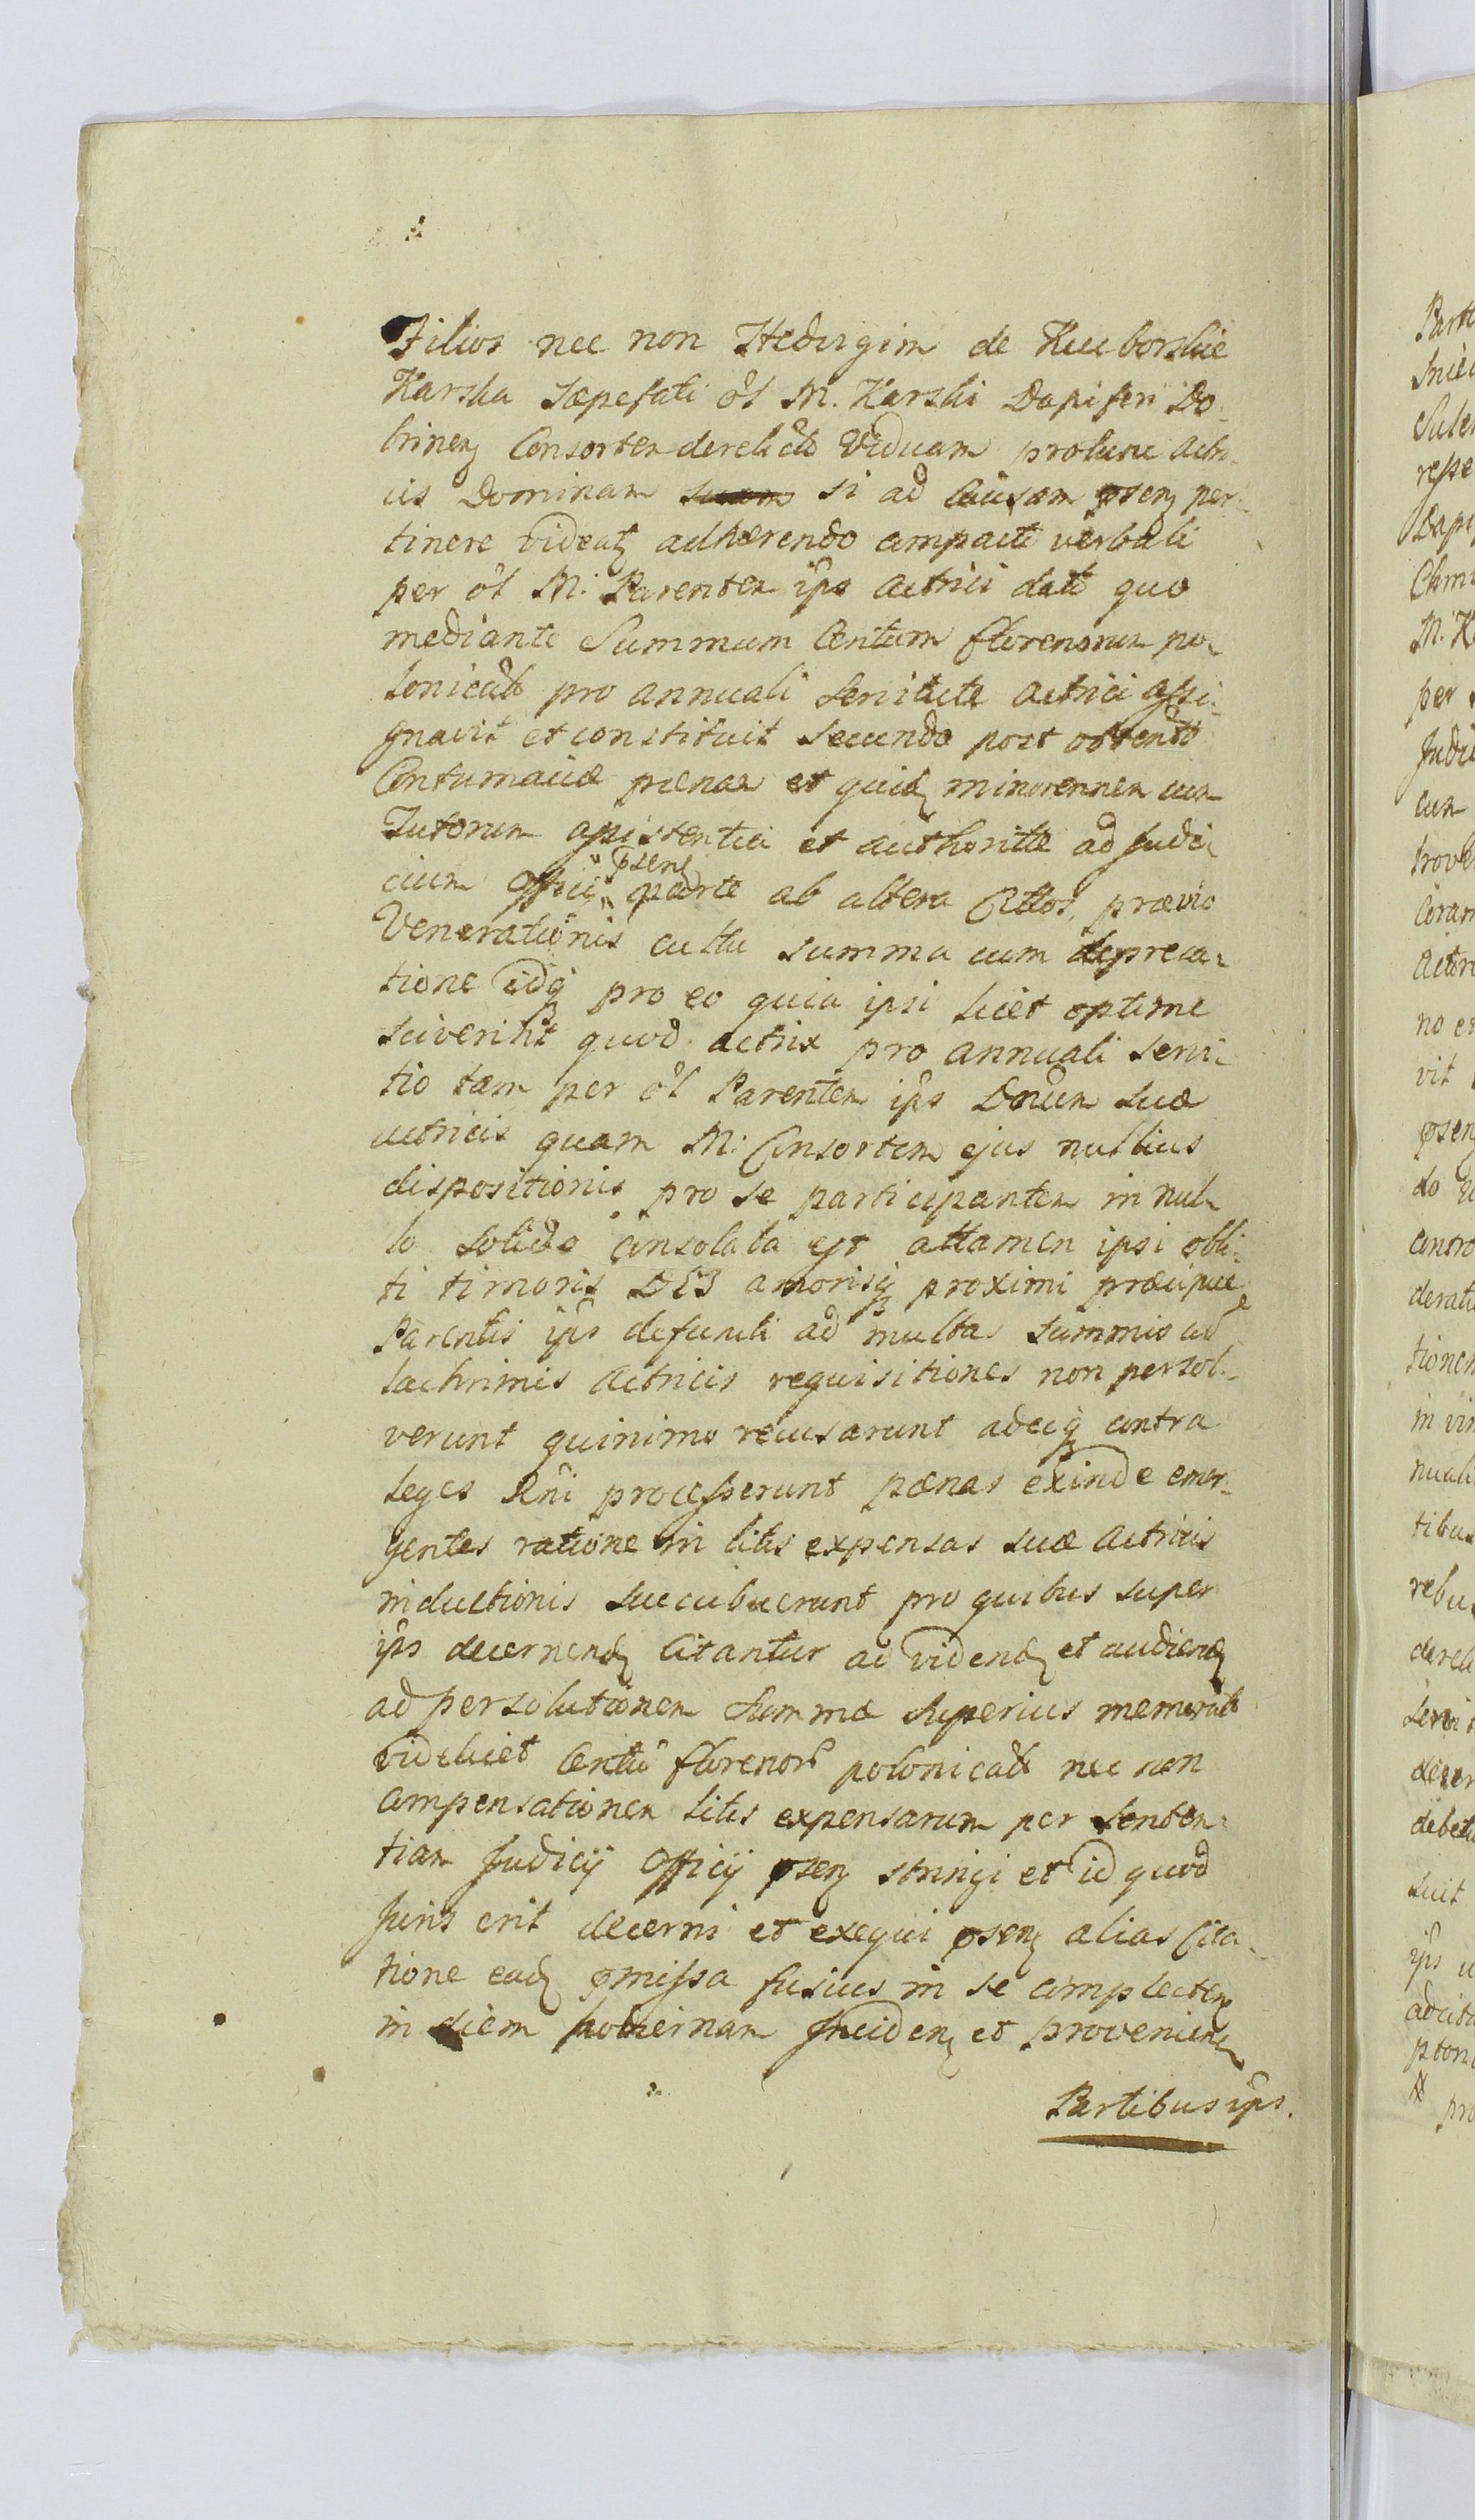 Filios nec non Hedvigim de Kucborskie
Karska sæpefati ol M. Karski Dapiferi Do-
brinen Consortem derelictã Viduam protunc Actri-
cis Dominam suam si ad causam p̃sen per-
tinere videat adhærendo compacti verbali
per ol M. Parentem ip̃o Actrici dati quo
mediante Summam Centum florenorum po-
lonicaliũ pro annuali servitute Actrici assi-
gnavit et constituit secundo post obtentã
Contumaciæ pænam et quid minorennem cum
Tutorum assistentia et authoritte ad Judi-
p̃sens
cium Officij parte ab altera Cittos, prævio
Venerationis cultu summa cum depreca-
tione idq pro eo quia ipsi licet optime
sciverint quod actrix pro annuali servi-
tio tam per ol Parentem ip̃o Dnum suæ
actricis quam M. Consortem ejus nullius
dispositionis pro se participantem in nul-
lo solido consolata est attamen ipsi obli-
ti timoris DEI amorisq proximi præcipue
Parentis ip̃o defuncti ad multas summis cũ
lachrimis Actricis requisitiones non persol-
verunt quinimo recusarunt adeoq contra
leges Rñi processerunt pænas exinde emer-
gentes ratione in litis expensas suæ Actricis
inductionis succubuerunt pro quibus super
ip̃s decernend Citantur ad videnð et audienð
ad persolutionem Summæ superius memoratæ
videlicet Centũ florenorũ polonicaliũ nec non
compensationem litis expensarum per Senten-
tiam Judicij Officij p̃sen stringi et id quod
Juris erit decerni et exequi p̃sen alias Cita-
tione eað p̃missa fusius in se complecten
in diem hodiernam Inciden et provenien
Partibus ip̃s.